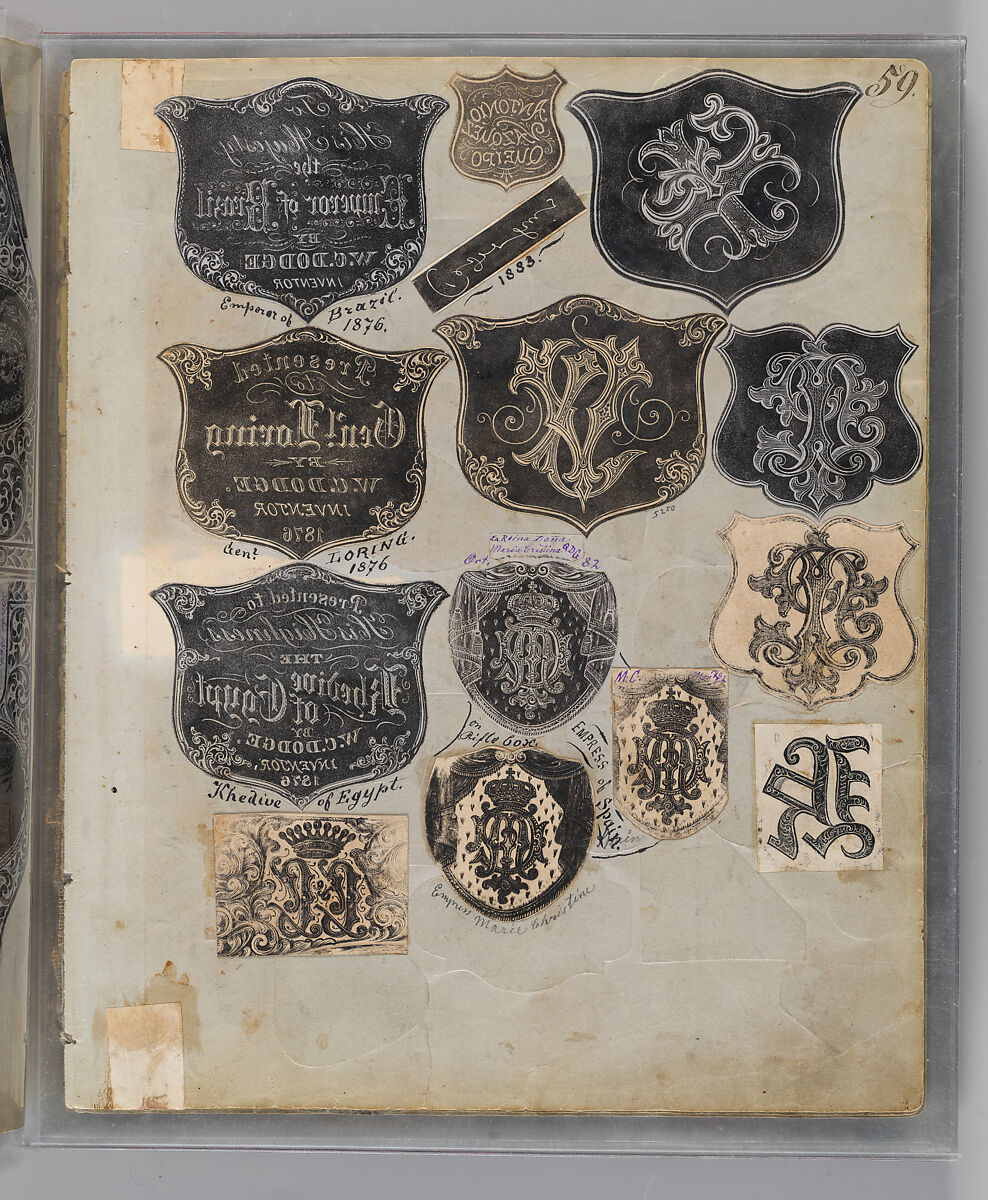 59.
To
His Majesty
the
Emperor of Brazil
BY
W.C. DODGE
INVENTOR
Emperor of Brazil.
1876.
ANTONIO
QUEIPO
1883.
Presented
to
Gen! Loring
BY
W.C. DODGE.
INVENTOR
1876
Gen! LORING.
1876
5250
La Reina Doña
Maria Cristina QDG
Oct. 82
Presented to
His Highness,
THE
Khedive
of Egypt
BY
W.C. DODGE,
INVENTOR,
1876
Khedive of Egypt.
on
Rifle box.
M.C.
EMPRESS of Spain.
Empress Marie Christine